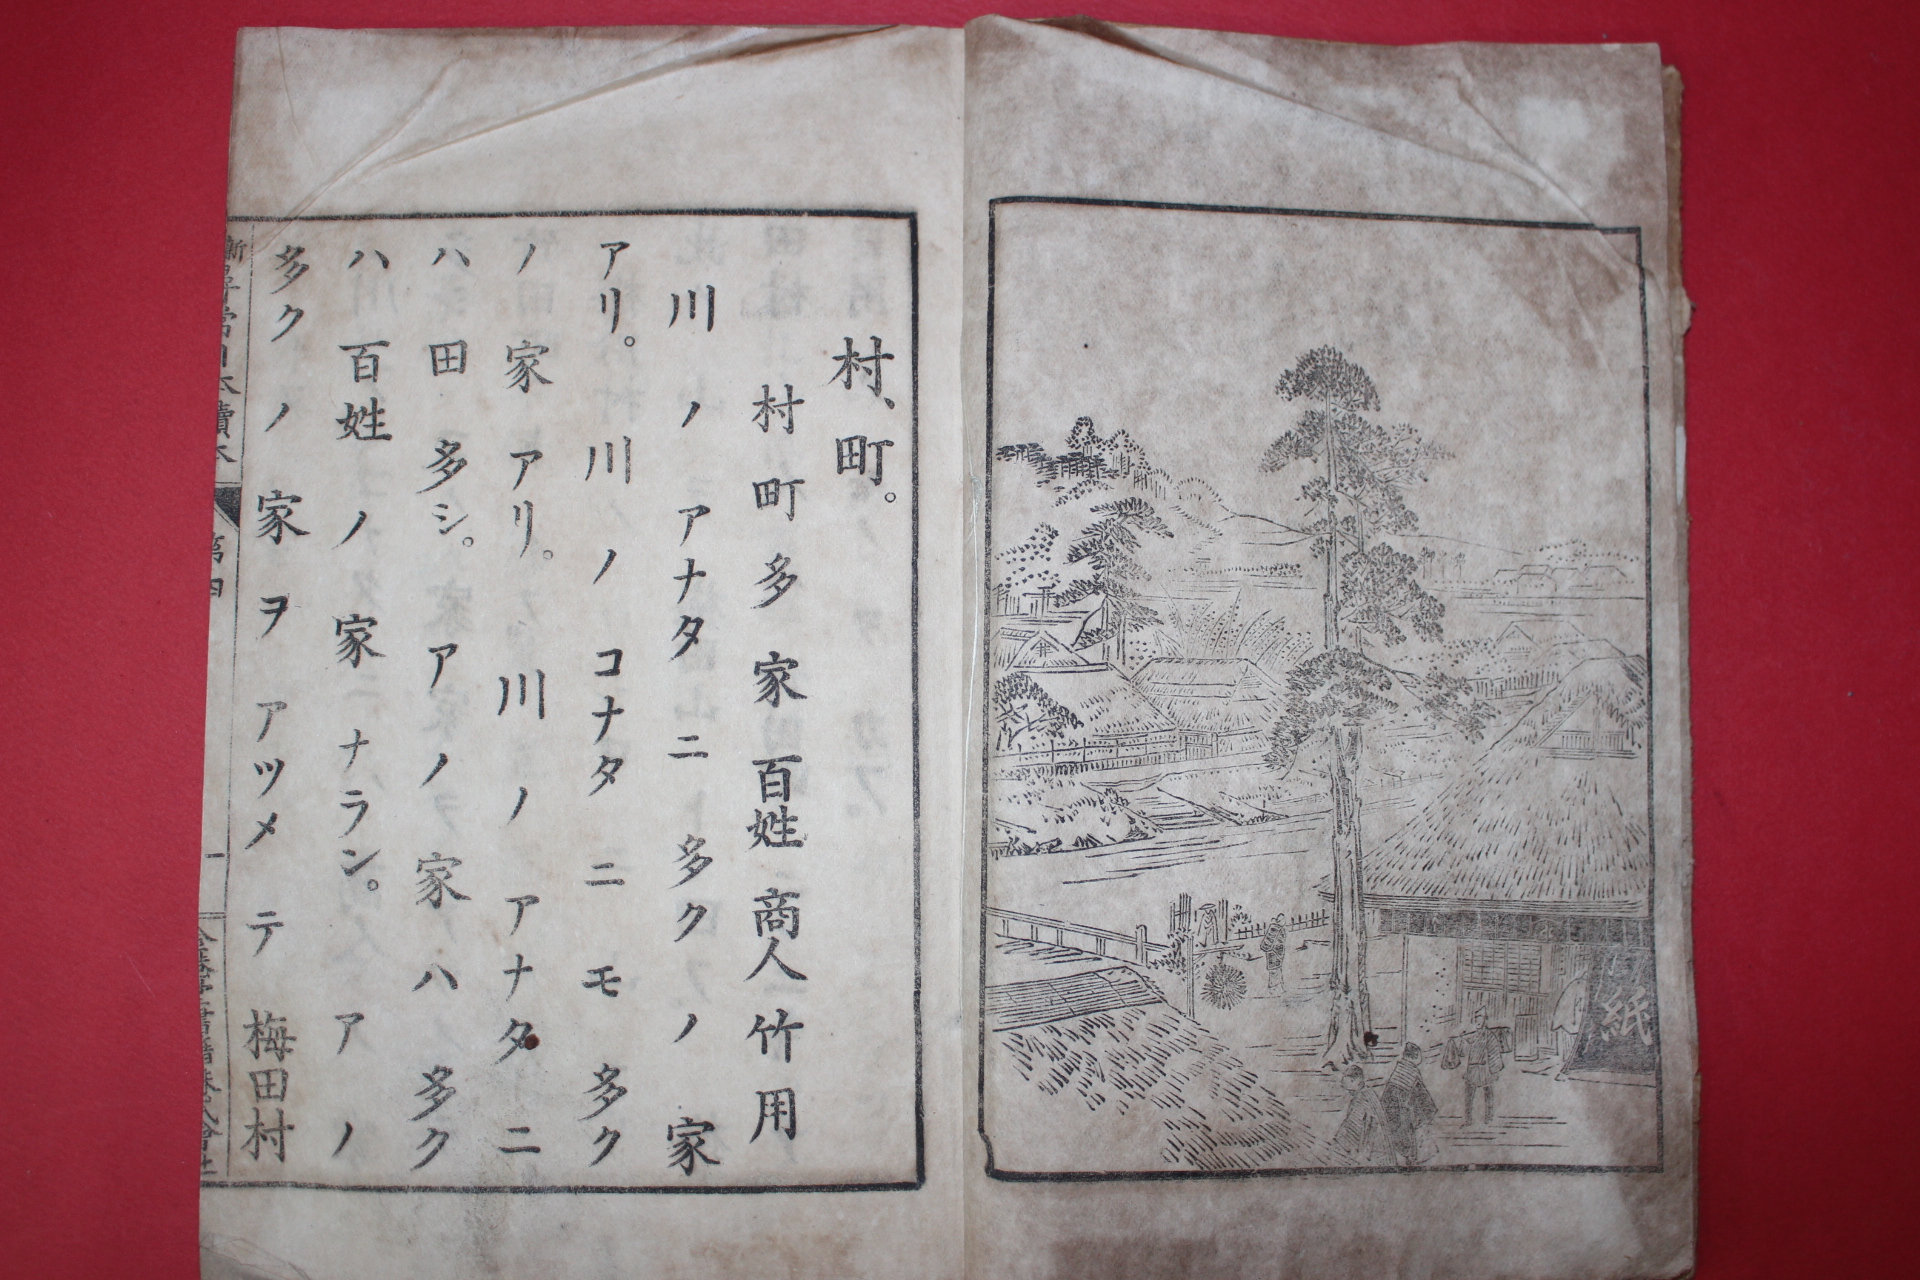 紙
村、町。
村 町 多 家 百姓 商人 竹 用
川 ノ アナタ ニ 多ク ノ 家
アリ。 川 ノ コナタ ニ モ 多ク
ノ 家 アリ。 川 ノ アナタ ニ
ハ 田 多シ。 アノ 家 ハ 多ク
ハ 百姓 ノ 家 ナラン。 ア ノ
多ク ノ 家 ヲ アツメ テ 梅田村
新 尋常日本讀本 第四 一